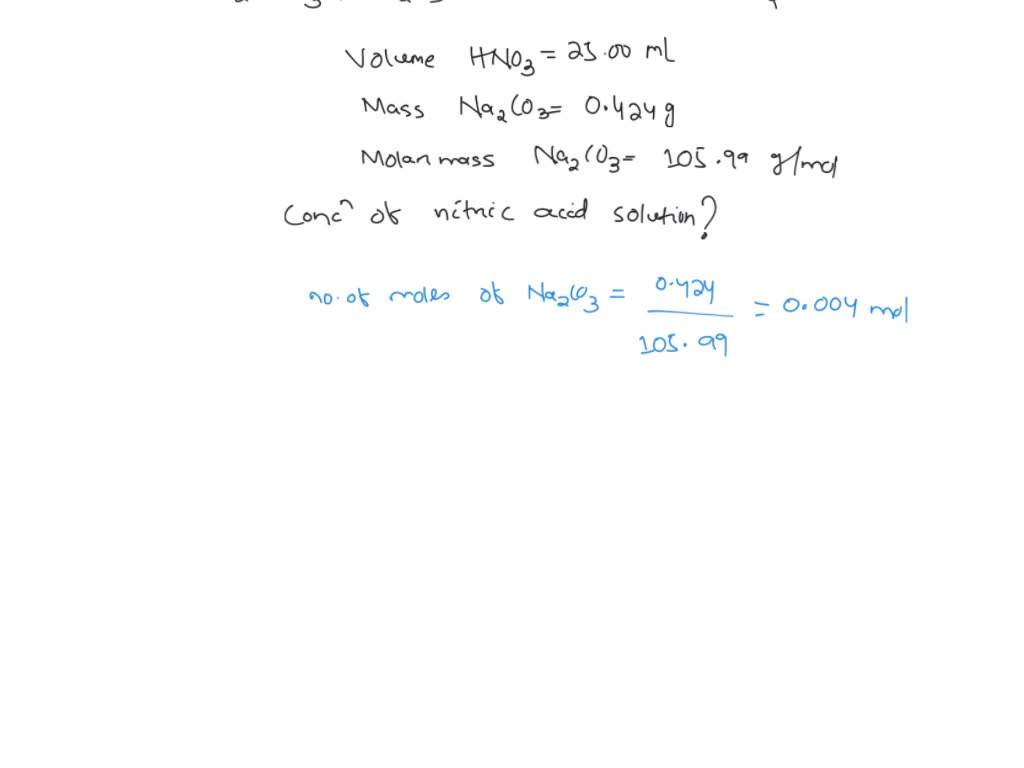 Volume HNO3 = 25.00 ml
Mass Na2CO3= 0.424g
Molar mass Na2CO3= 105.99 g/mol
Concn of nitric acid solution?
no. of moles of Na2CO3 = 0.424 / 105.99 = 0.004 mol